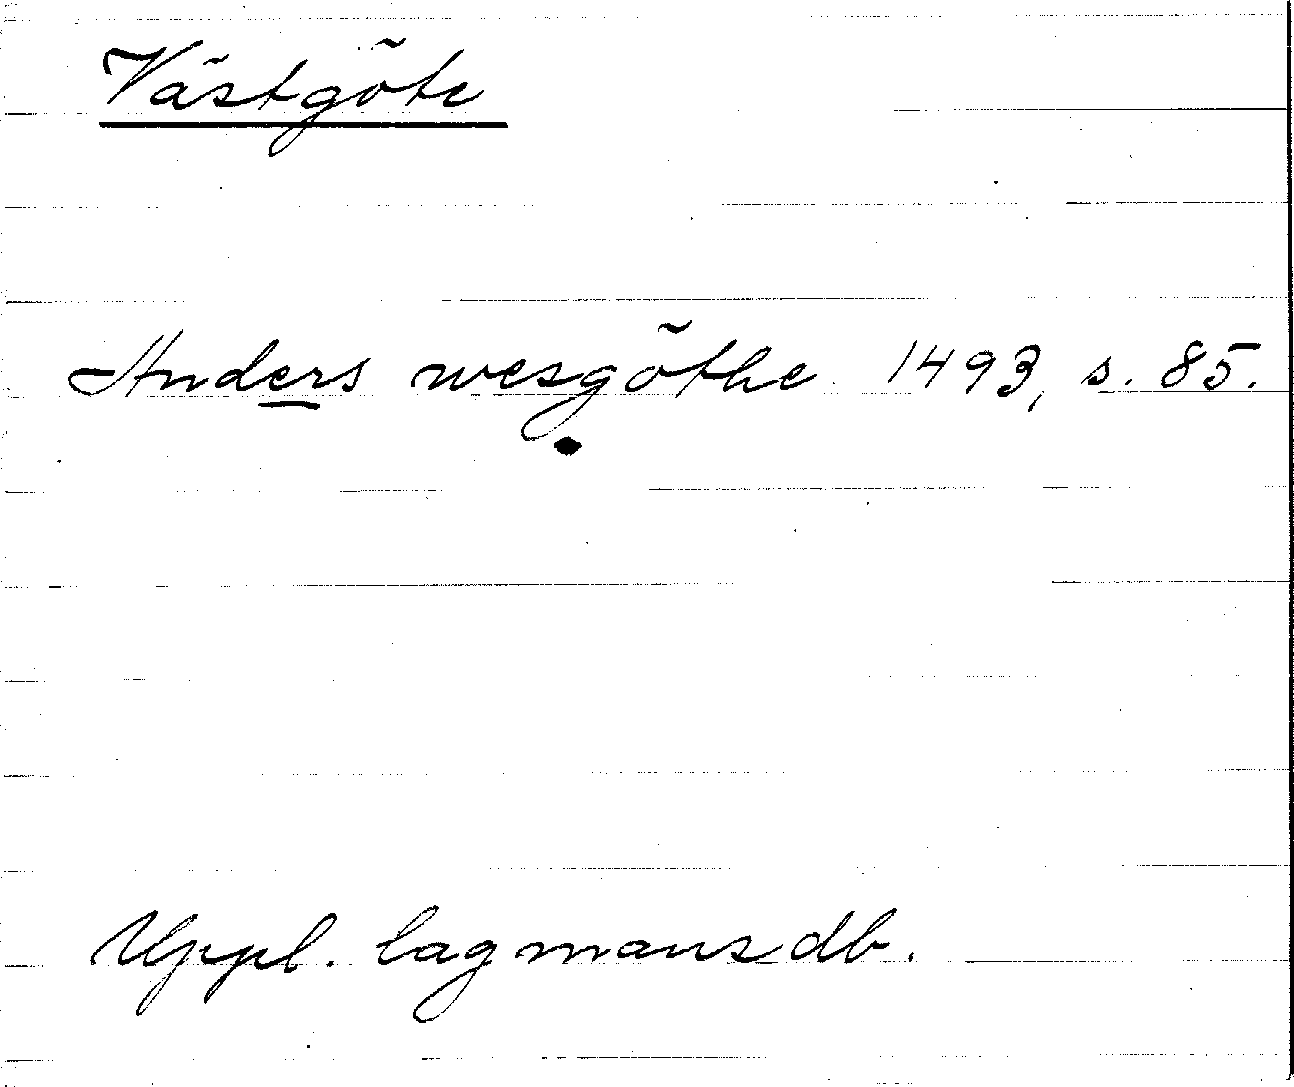 Västgöte
Anders wesgöthe 1493, s. 85.
Uppl. lagmansdb.